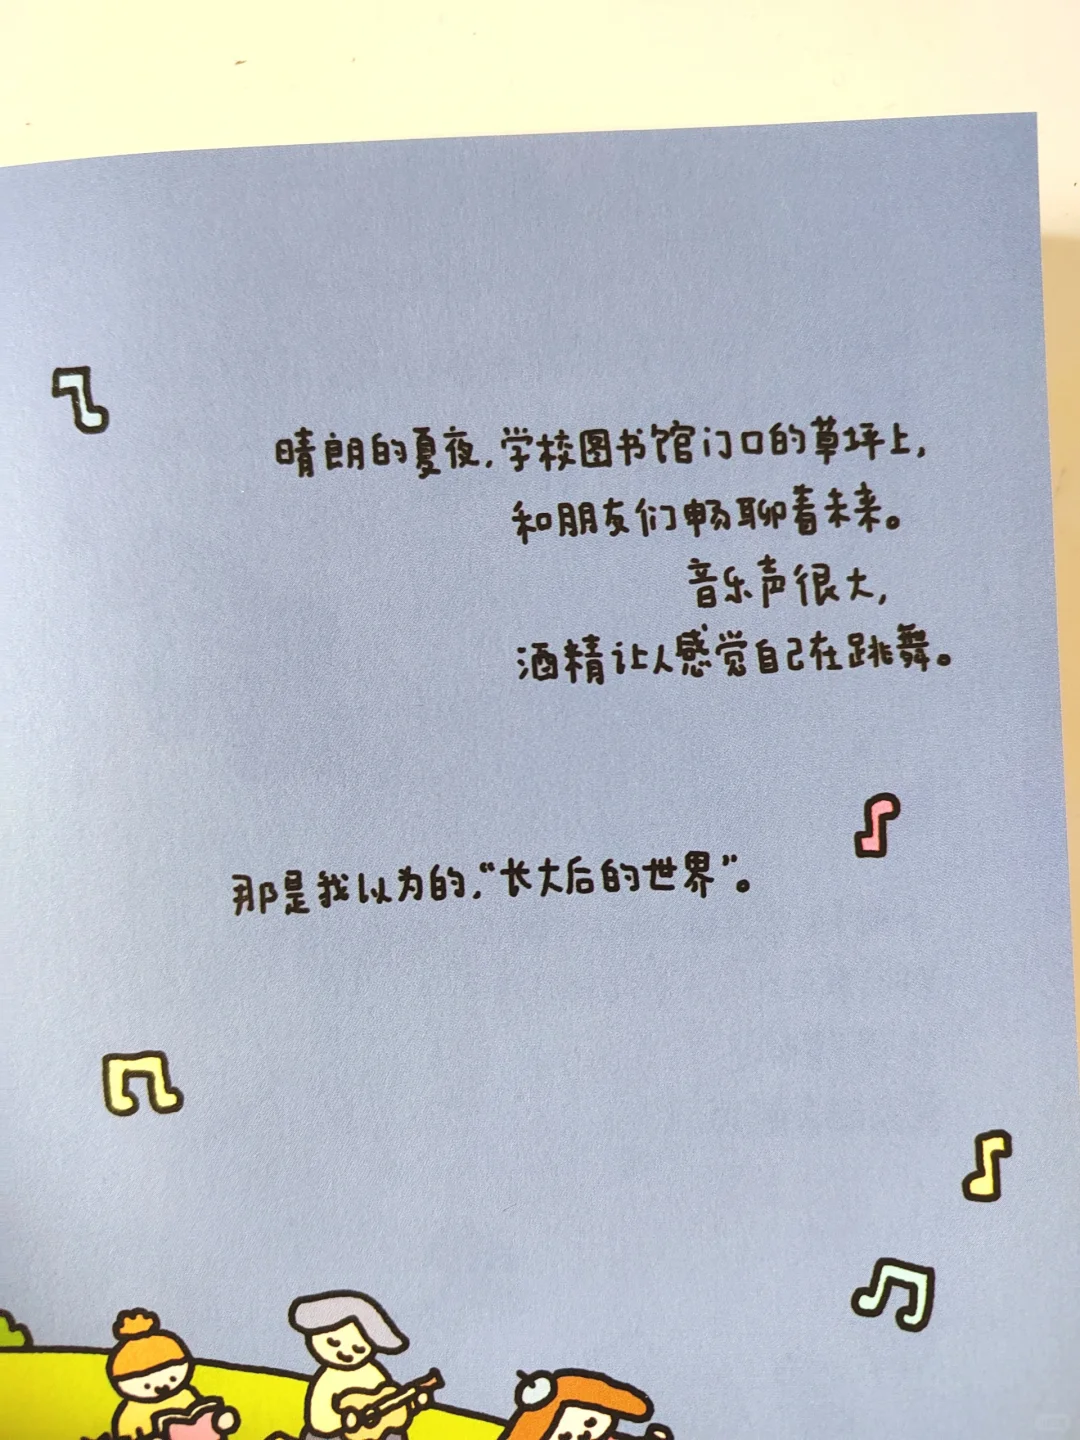 晴朗的夏夜,学校图书馆门口的草坪上,
和朋友们畅聊着未来。
音乐声很大,
酒精让人感觉自己在跳舞。
那是我以为的,“长大后的世界”。